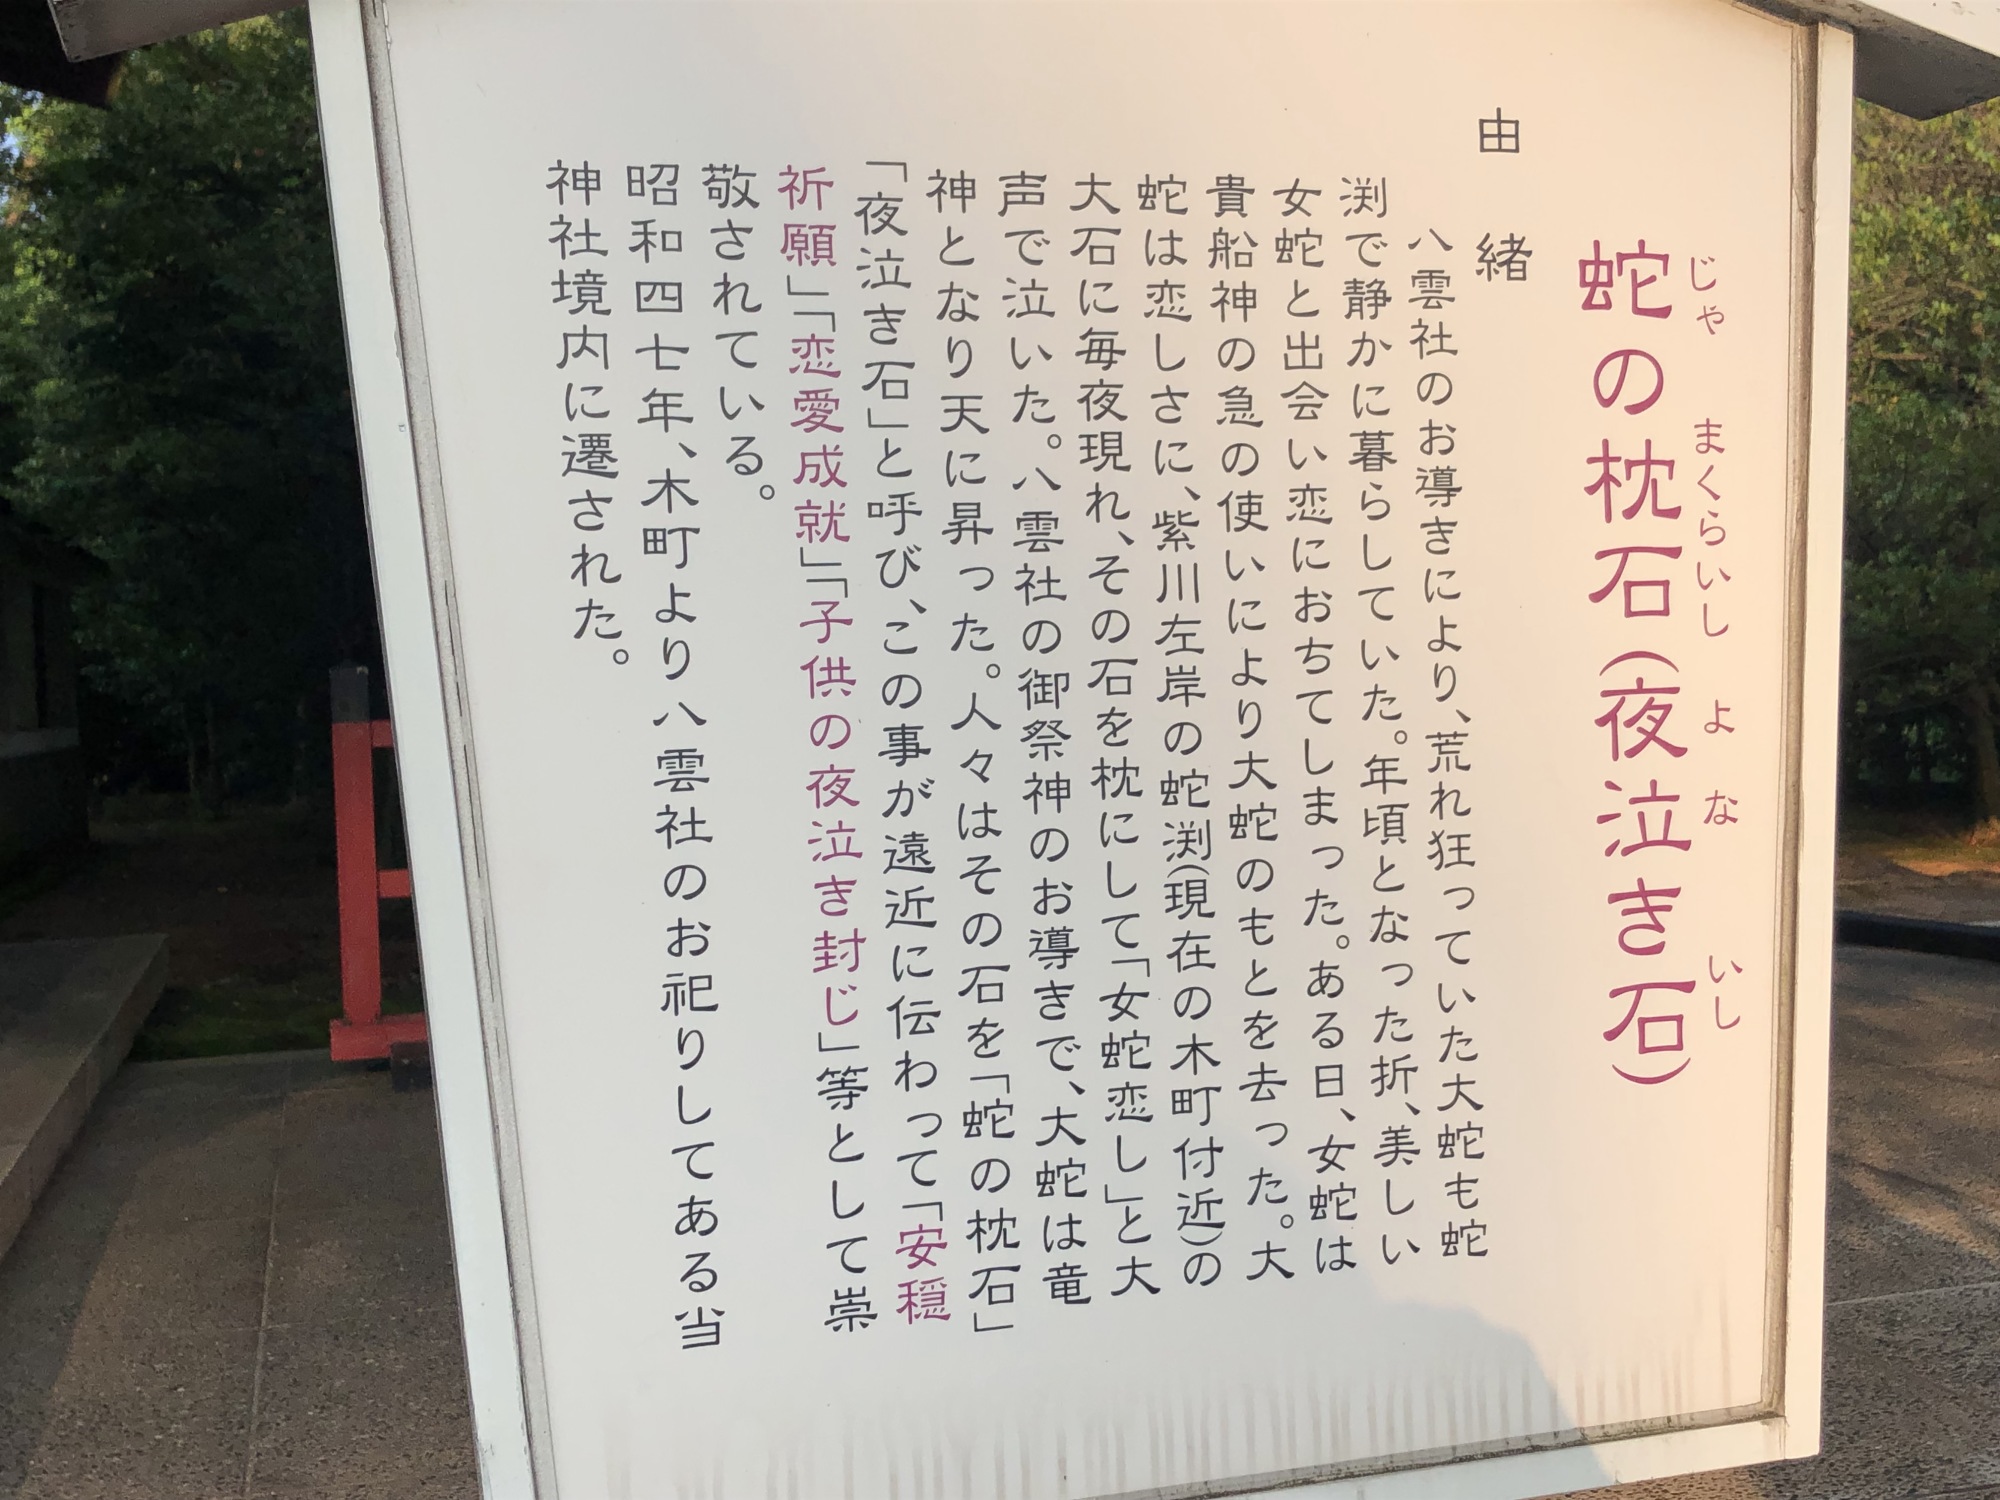 蛇の枕石（夜泣き石）
じゃ まくらいし よな いし
由緒
八雲社のお導きにより、荒れ狂っていた大蛇も蛇
渕で静かに暮らしていた。年頃となった折、美しい
女蛇と出会い恋におちてしまった。ある日、女蛇は
貴船神の急の使いにより大蛇のもとを去った。大
蛇は恋しさに、紫川左岸の蛇渕（現在の木町付近）の
大石に毎夜現れ、その石を枕にして「女蛇恋し」と大
声で泣いた。八雲社の御祭神のお導きで、大蛇は竜
神となり天に昇った。人々はその石を「蛇の枕石」
「夜泣き石」と呼び、この事が遠近に伝わって「安穏
祈願」「恋愛成就」「子供の夜泣き封じ」等として崇
敬されている。
昭和四七年、木町より八雲社のお祀りしてある当
神社境内に遷された。